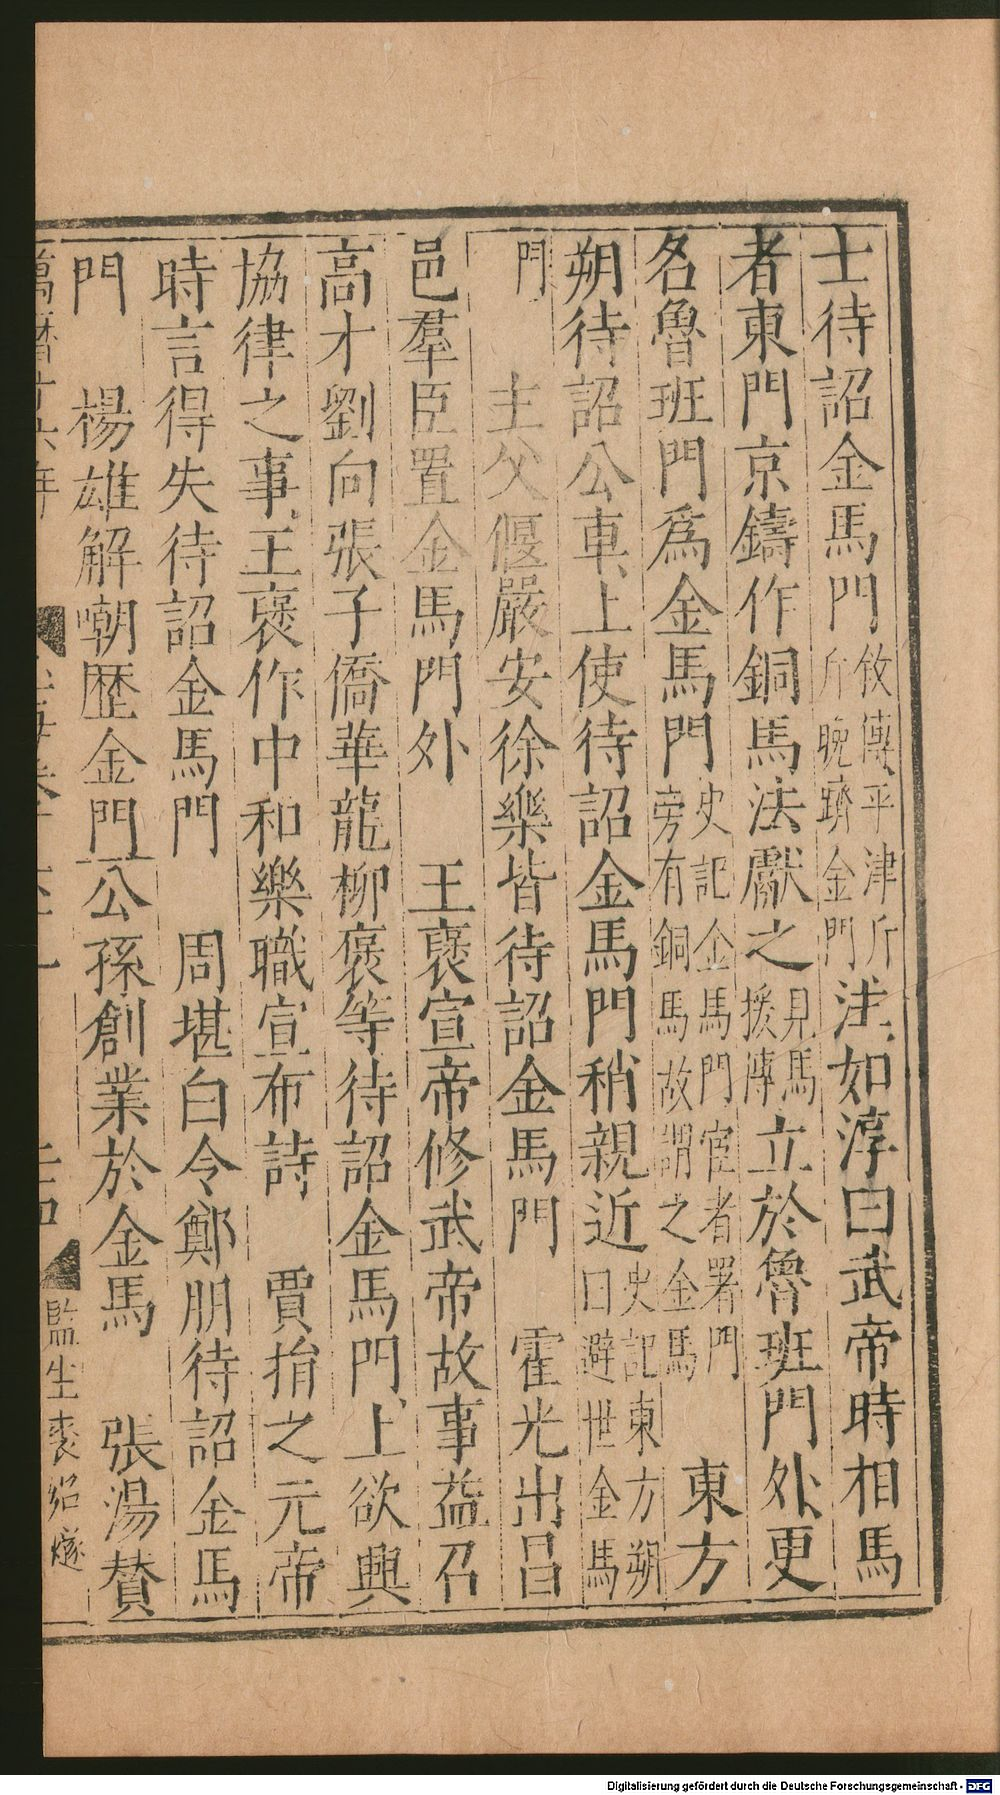 士待詔金馬門攸傳平津斤斤晚躋金門注如淳曰武帝時相馬
者東門京鑄作銅馬法獻之見馬援傳立於魯班門外更
名魯班門爲金馬門史記金馬門宦者署門旁有銅馬故謂之金馬 東方
朔待詔公車上使待詔金馬門稍親近史記東方朔曰避世金馬
門 主父偃嚴安徐樂皆待詔金馬門 霍光出昌
邑羣臣置金馬門外 王襃宣帝修武帝故事益召
高才劉向張子僑華龍柳襃等待詔金馬門上欲興
協律之事王襃作中和樂職宣布詩 賈捐之元帝
時言得失待詔金馬門 周堪白令鄭朋待詔金馬
門 楊雄解嘲歷金門公孫創業於金馬 張湯賛
萬曆十六年 監生裘紹
Digitalisierung gefördert durch die Deutsche Forschungsgemeinschaft - DFG